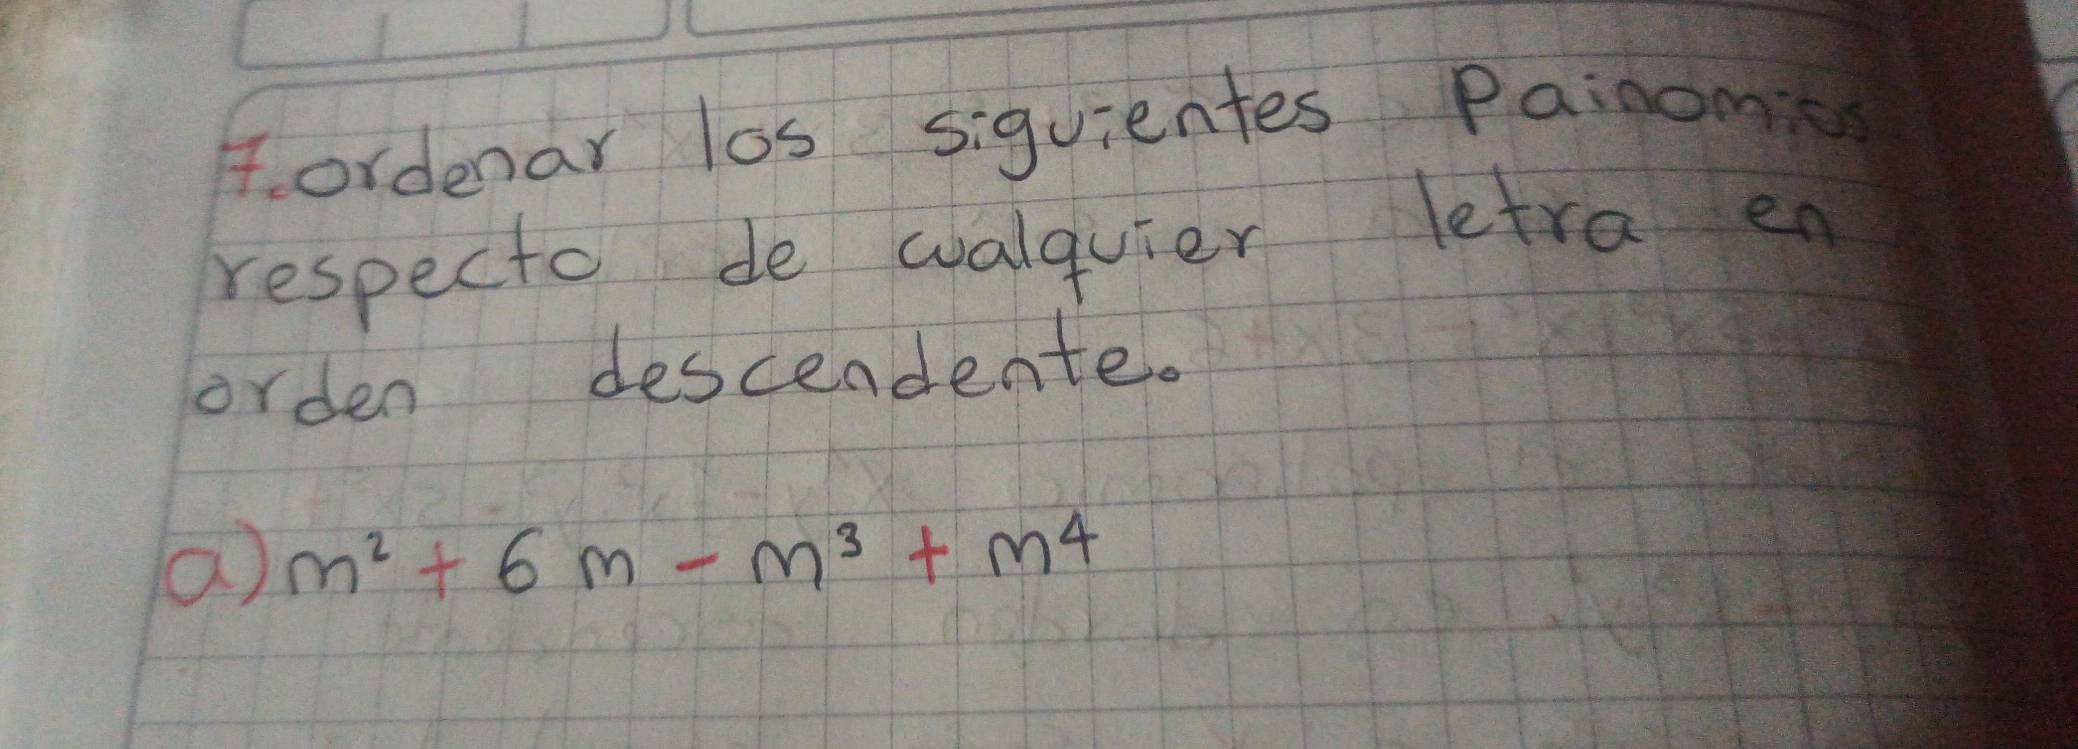 7. ordenar los siguientes Painomios
respecto de cualquier letra en
orden descendente.
a) m² + 6 m - m³ + m⁴